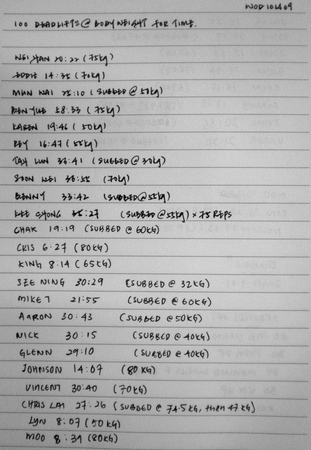 WOD 101609
100 DEADLIFTS @ BODYWEIGHT FOR TIME.
WEI YAN 20:22 (75kg)
EDDIE 14:35 (70kg)
MUN WAI 25:10 (SUBBED @ 50kg)
BEN YUE 28:33 (75kg)
KAREN 19:46 (50kg)
REY 16:47 (55kg)
TAH LUN 34:41 (SUBBED @ 30kg)
SOON WEI 38:55 (70kg)
BENNY 33:42 (SUBBED @ 55kg)
LEE CHONG :27 (SUBBED @ 55kg) x 75 REPS
CHAK 19:19 (SUBBED @ 60KG)
CRIS 6:27 (80KG)
KING 8:14 (65KG)
SZE NING 30:29 (SUBBED @ 32KG)
MIKE T 21:55 (SUBBED @ 60KG)
AARON 30:43 (SUBBED @ 50KG)
NICK 30:15 (SUBBED @ 40KG)
GLENN 29:10 (SUBBED @ 40KG)
JOHNSON 14:07 (80 KG)
VINCENT 30:40 (70KG)
CHRIS LAI 27:26 (SUBBED @ 74.5KG, THEN 47 KG)
LYN 8:07 (50 KG)
MOO 8:39 (80KG)